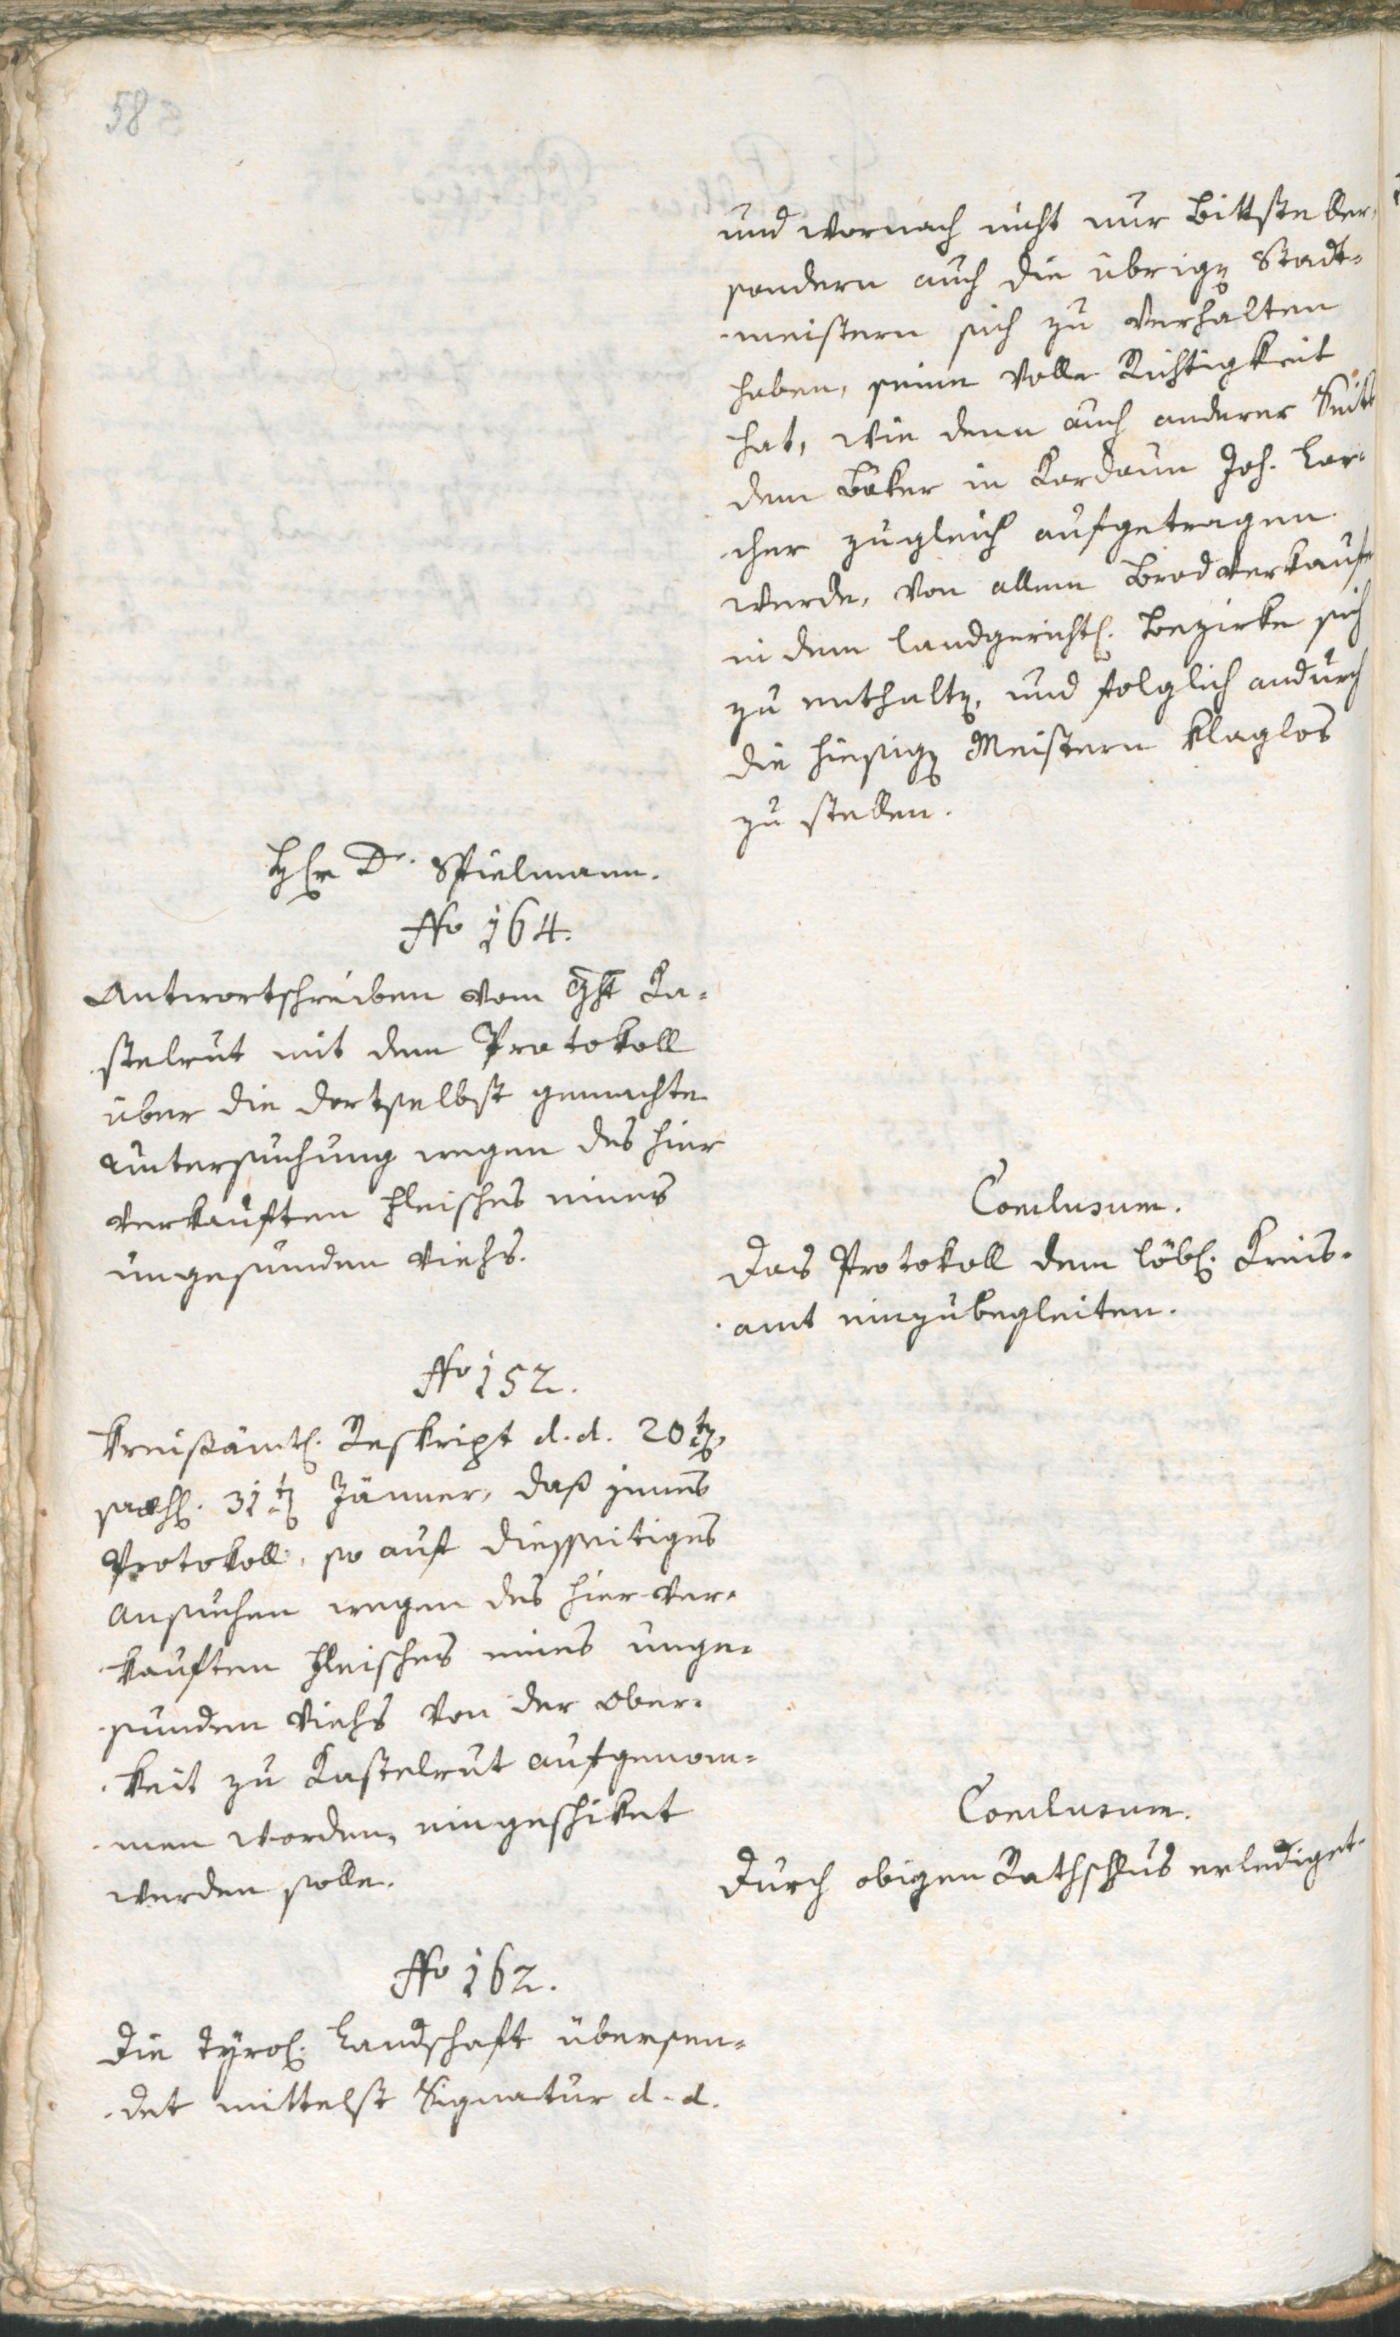 58
und wornach nicht nur Bittsteller,
sondern auch die übrigen Stadt-
meistern sich zu verhalten
haben, seine volle Richtigkeit
hat, wie denn auch anderer Seits
dem Bäker in Kardaun Joh. Lar-
cher zugleich aufgetragen
werde, von allem Brodverkaufe
in dem landgerichtl. Bezirke sich
zu enthalten, und folglich andurch
die hiesigen Meistern klaglos
zu stellen.
Hr Dr. Spielmann.
No 164.
Antwortschreiben vom Ght Ka-
stelrut mit dem Protokoll
über die dortselbst gemachte
Untersuchung wegen des hier
verkauften Fleisches eines
ungesunden Viehs.
Conclusum.
Das Protokoll dem löbl. Kreis-
amt einzubegleiten.
No 152.
Kreisämtl. Reskript d. d. 20ten,
31ten Jänner, daß jenes
Protokoll, so auf diesseitiges
Ansuchen wegen des hier ver-
kauften Fleisches eines unge-
sunden Viehs von der Ober-
keit zu Kastelrut aufgenom-
men worden, eingeschiket
werden solle.
Conclusum.
Durch obigen Rathschlus erlediget.
No 162.
Die Tÿrol. Landschaft übersen-
det mittelst Signatur d. d.